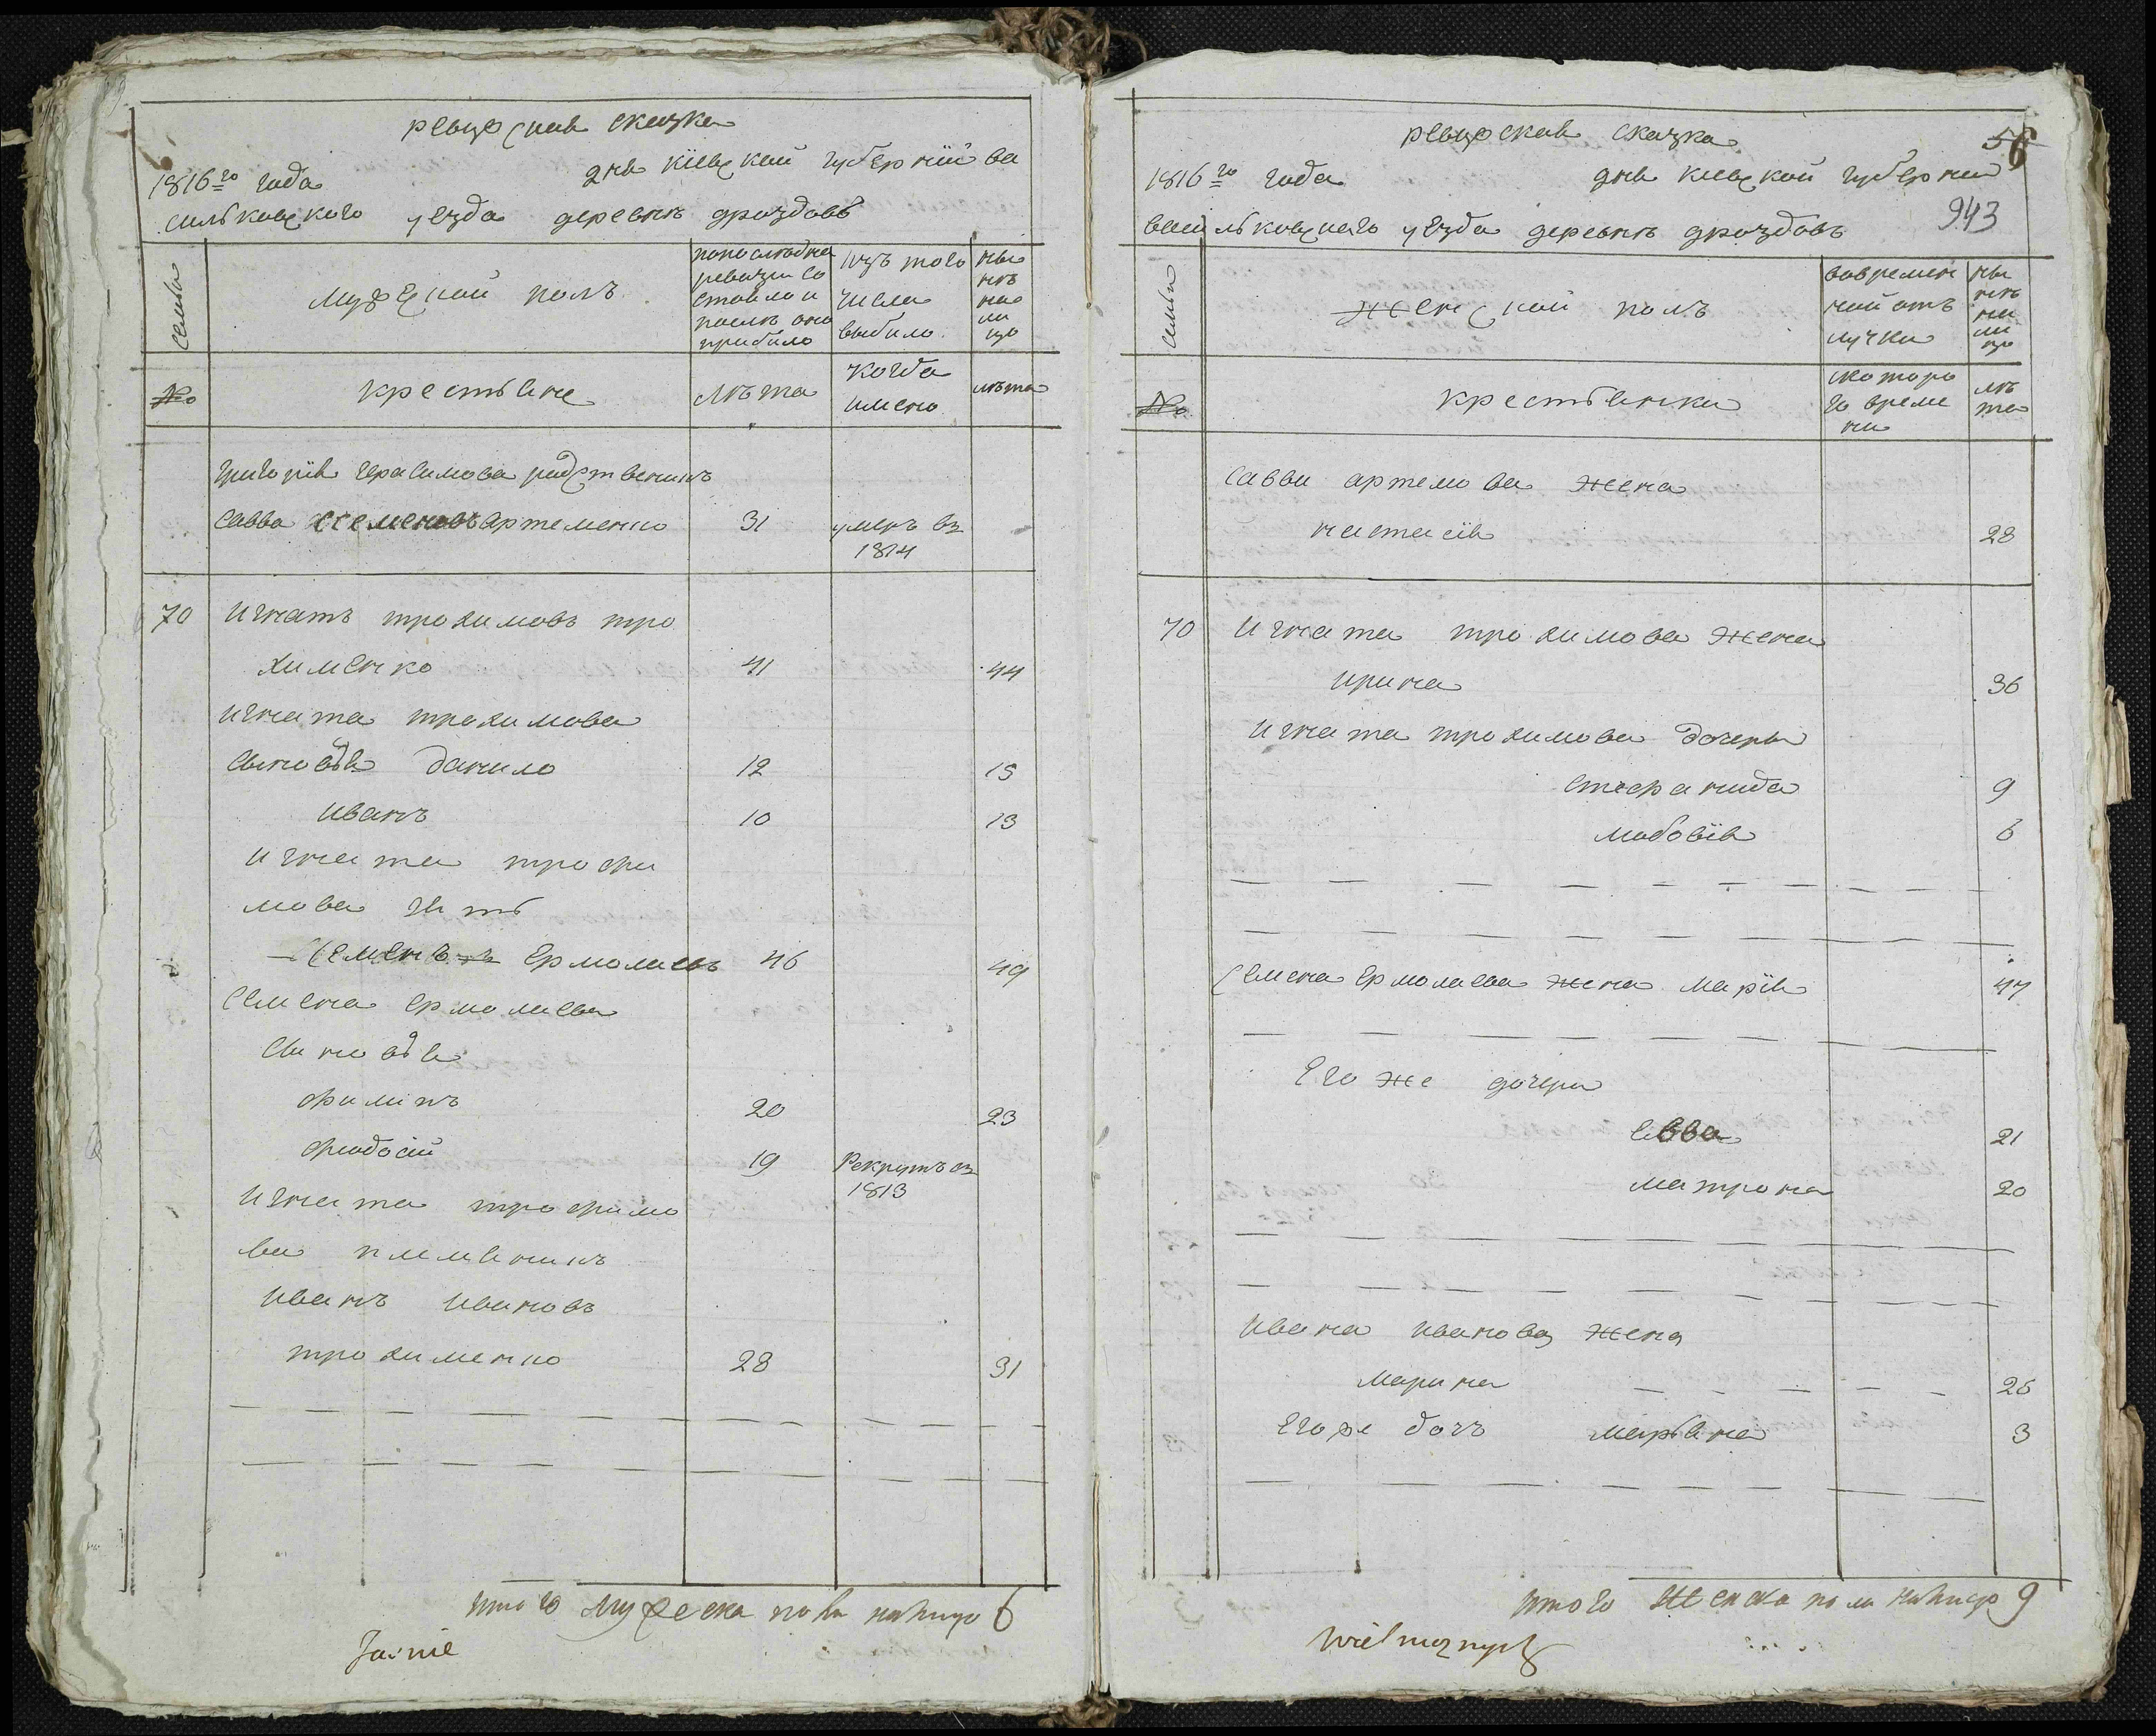 ревизская сказка
1816го года дня кіевской губерніи ва
силковского уезда деревнѣ дроздовъ
семьи
мужеской полъ
попоследнеи ревизи состояло и послѣ оно прибыло
изъ того числа выбило
нынѣ на лицо
№о
крестьяне
лѣта
когда имено
лѣта
григорія герасимова родственикъ
савва артеменко 31 умеръ въ
1814
70 игнатъ трохимовъ тро
хименко 41 44
игната трохимова
синовья данило 12 15
иванъ 10 13
игната трофи
мова зять
семенъ ермолаевъ 46 49
семена ермолаева
синовья
филипъ 20 23
феодосій 19 Рекрутъ въ
1813
игната трофимо
ва племяникъ
иванъ ивановъ
трохименко 28 31
итого мужеска пола налицо 6
Jaśnie
56
943
ревизская сказка
1816го года дня киевской губернии
василковского уезда деревнѣ дроздовъ
семьи
женской полъ
вовременной отлучки
нынѣ на лицо
№о
крестьянки
скоторого времени
лѣта
саввы артемова жена
настасія 28
70 игната трохимова жена
ирина 36
игната трохимова дочеры
стефанида 9
любовія 6
семена ермолаева жена марія 47
его же дочери
евва 21
матрона 20
ивана иванова жена
марина 26
его же дочъ марьяна 3
итого женска пола налицо 9
wielmoznych